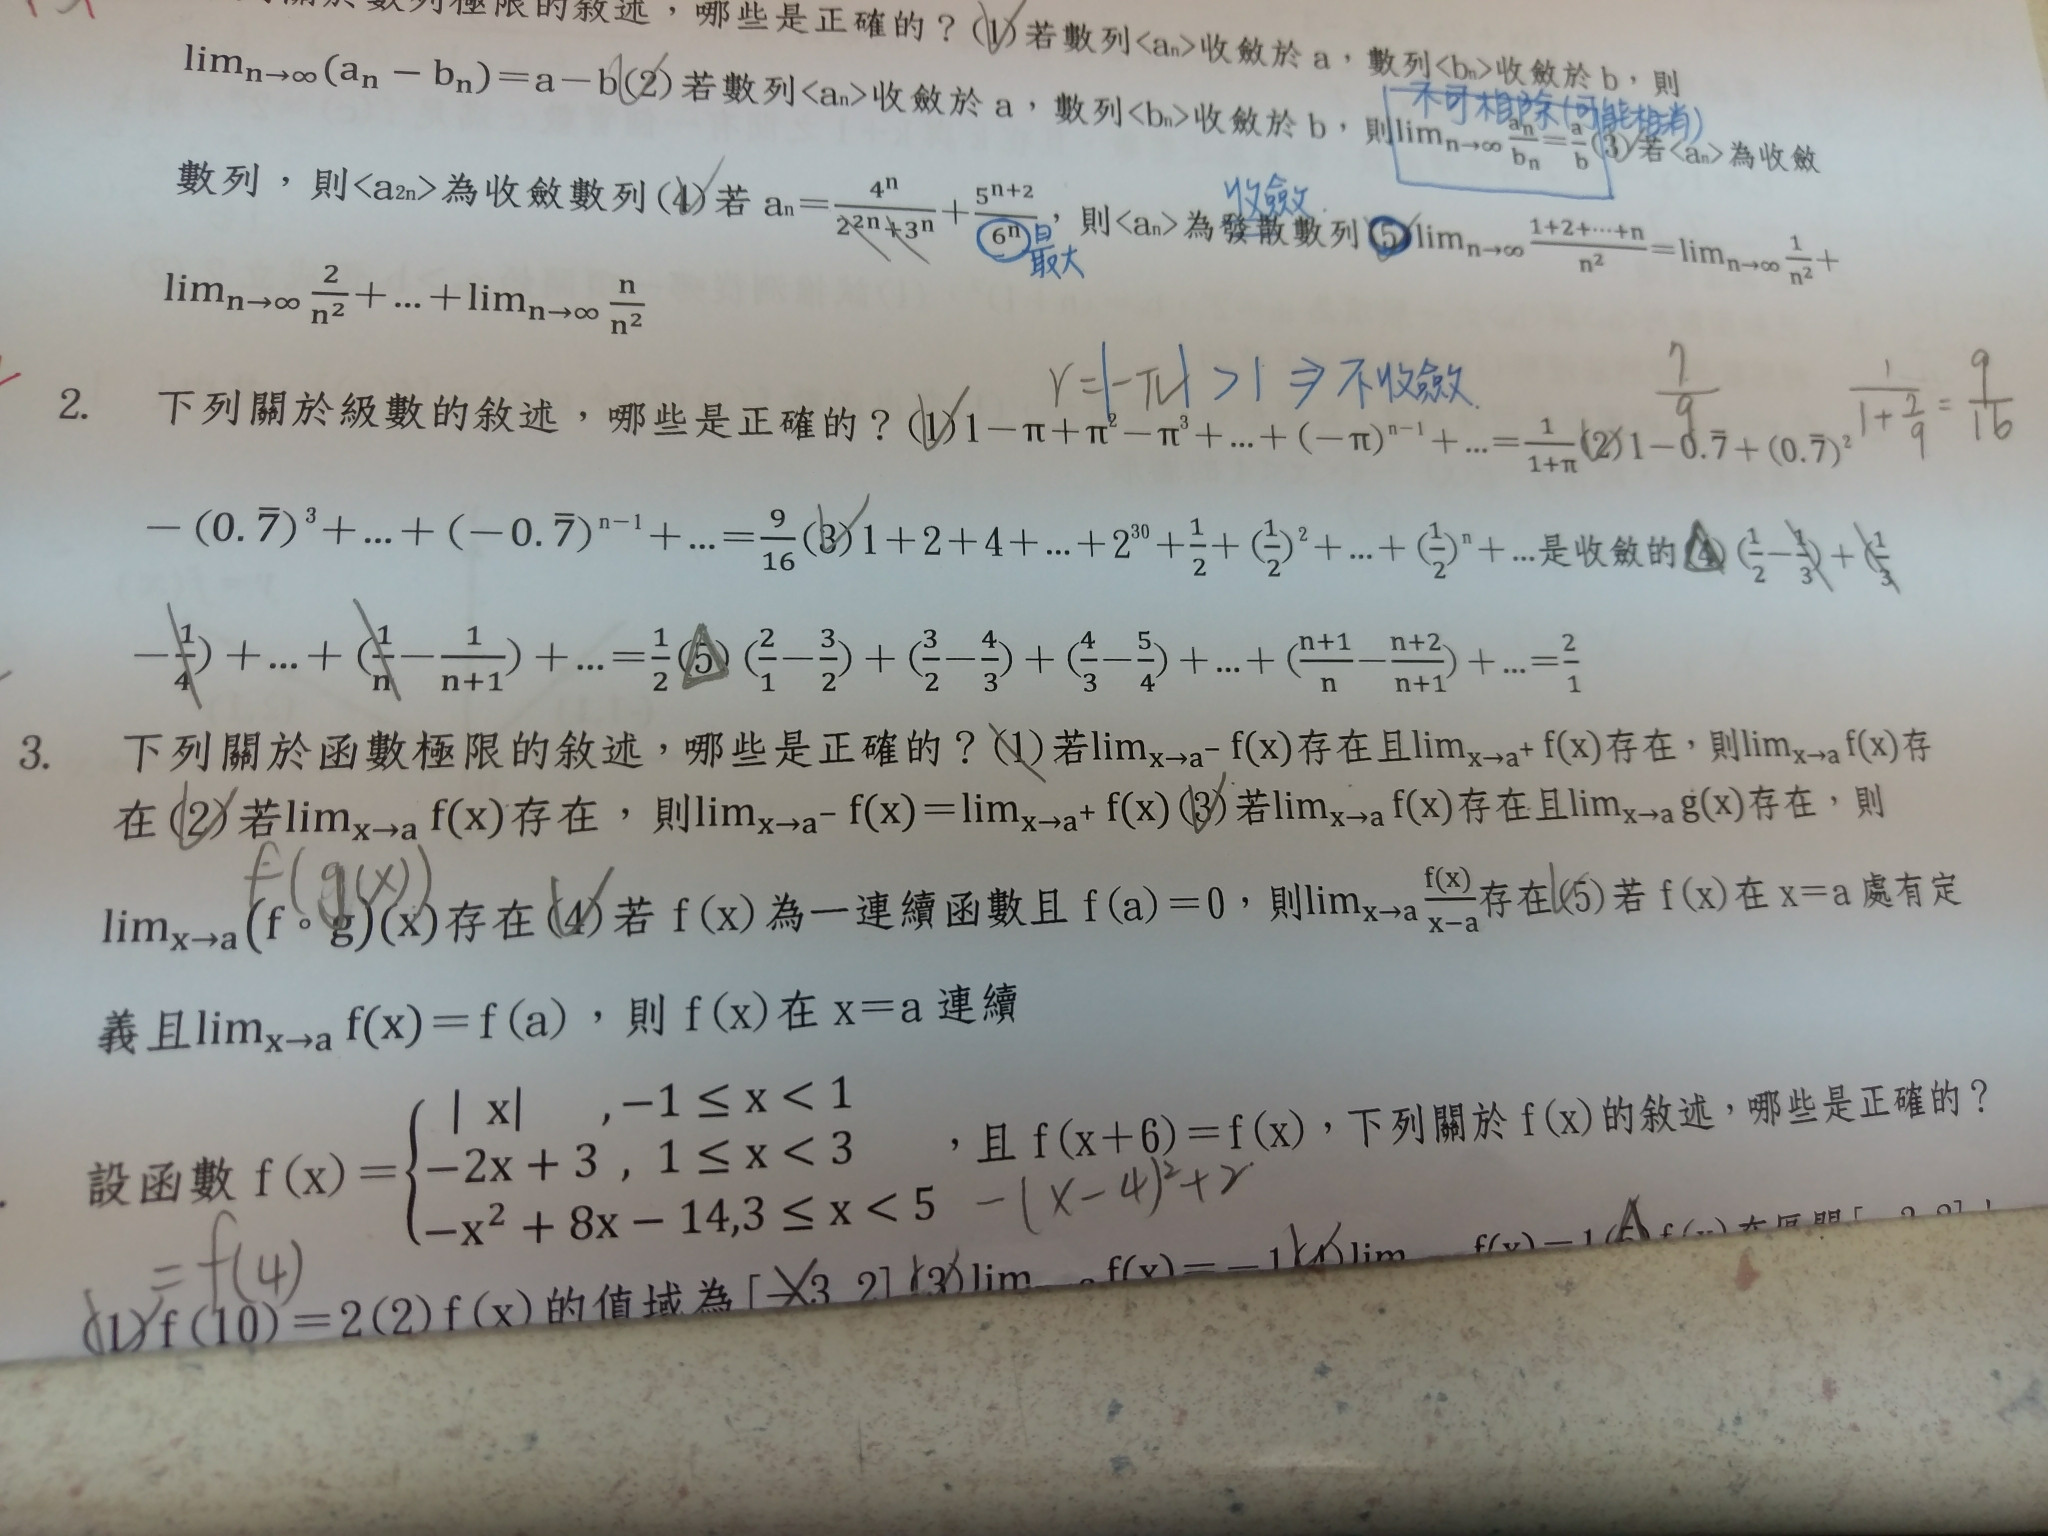 關於數列極限的敘述，哪些是正確的？(1)若數列<aₙ>收斂於 a，數列<bₙ>收斂於 b，則
limₙ→∞(aₙ − bₙ)=a−b(2)若數列<aₙ>收斂於 a，數列<bₙ>收斂於 b，則limₙ→∞ aₙ/bₙ = a/b (3)若<aₙ>為收斂
不可相除(可能相消)
數列，則<a₂ₙ>為收斂數列(4)若 aₙ= 4ⁿ/(2²ⁿ+3ⁿ) + 5ⁿ⁺²/6ⁿ，則<aₙ>為發散數列(5)limₙ→∞ (1+2+⋯+n)/n² =limₙ→∞ 1/n² +
收斂
最大
limₙ→∞ 2/n² +...+limₙ→∞ n/n²
r=|-π|>1⇒不收斂
7/9
1/(1+2/9) = 9/16
2. 下列關於級數的敘述，哪些是正確的？(1)1−π+π²−π³+...+(−π)ⁿ⁻¹+...= 1/(1+π) (2)1−0.7̅+(0.7̅)²
−(0.7̅)³+...+(−0.7̅)ⁿ⁻¹+...= 9/16 (3)1+2+4+...+2³⁰+ 1/2 +(1/2)²+...+(1/2)ⁿ+...是收斂的(4)(1/2 − 1/3)+(1/3
− 1/4)+...+(1/n − 1/(n+1))+...= 1/2 (5)(2/1 − 3/2)+(3/2 − 4/3)+(4/3 − 5/4)+...+((n+1)/n − (n+2)/(n+1))+...= 2/1
3. 下列關於函數極限的敘述，哪些是正確的？(1)若limₓ→ₐ⁻ f(x)存在且limₓ→ₐ⁺ f(x)存在，則limₓ→ₐ f(x)存
在(2)若limₓ→ₐ f(x)存在，則limₓ→ₐ⁻ f(x)=limₓ→ₐ⁺ f(x)(3)若limₓ→ₐ f(x)存在且limₓ→ₐ g(x)存在，則
f(g(x))
limₓ→ₐ(f∘g)(x)存在(4)若 f(x)為一連續函數且 f(a)=0，則limₓ→ₐ f(x)/(x−a) 存在(5)若 f(x)在 x=a 處有定
義且limₓ→ₐ f(x)=f(a)，則 f(x)在 x=a 連續
| x| ,−1 ≤ x < 1
設函數 f(x)={ −2x + 3 , 1 ≤ x < 3 ，且 f(x+6)=f(x)，下列關於 f(x)的敘述，哪些是正確的？
−x² + 8x − 14,3 ≤ x < 5
−(x−4)²+2
=f(4)
(1)f(10)=2(2)f(x)的值域為[−3, 2](3)lim f(x)=−1(4)lim f(x)=1(5)f(x)在區間[